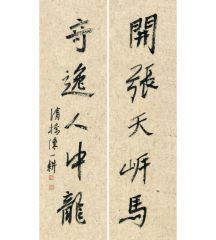 開張天岸馬
奇逸人中龍
清橋陳一耕